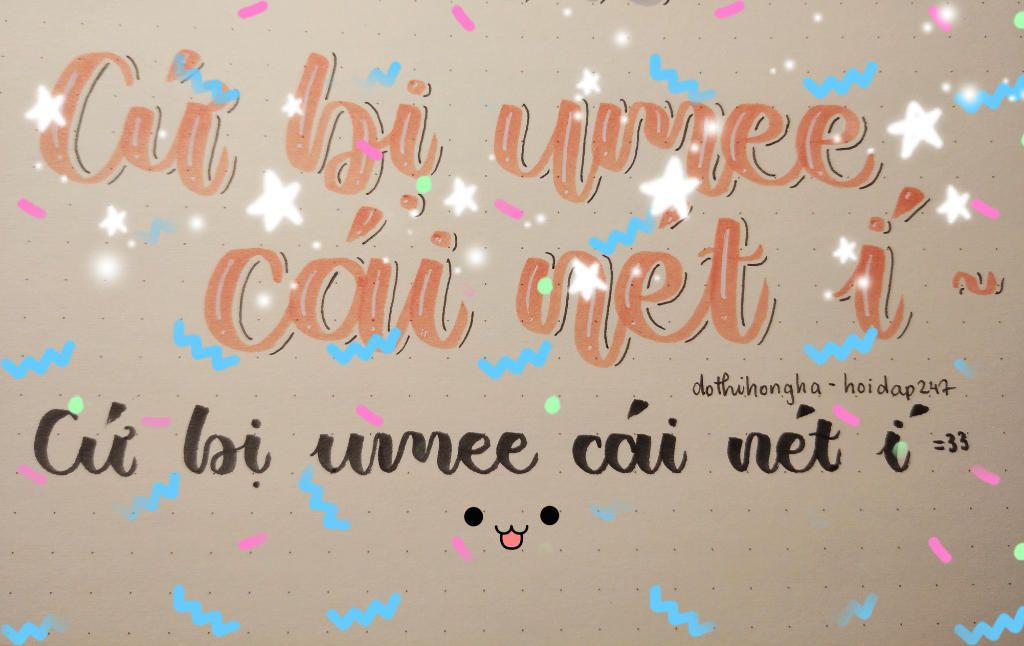 Cứ bị umee
cái nét í ~
dothihongha - hoidap247
Cứ bị umee cái nét í =33